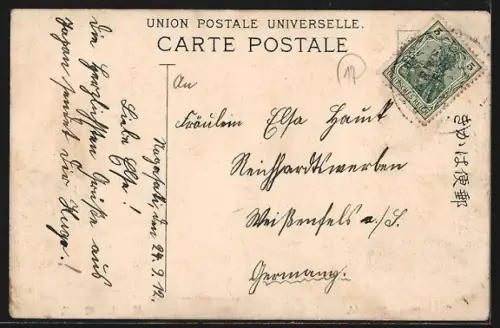 UNION POSTALE UNIVERSELLE.
CARTE POSTALE
17
5 5
きかは便郵
An
Fräulein Elsa Haupt
Reichhardtswerben
Weißenfels a/S.
Germany.
Nagasaki, den 24.9.12.
Liebe Elsa!
Die herzlichsten Grüße aus
Japan sendet Dir Hugo.!